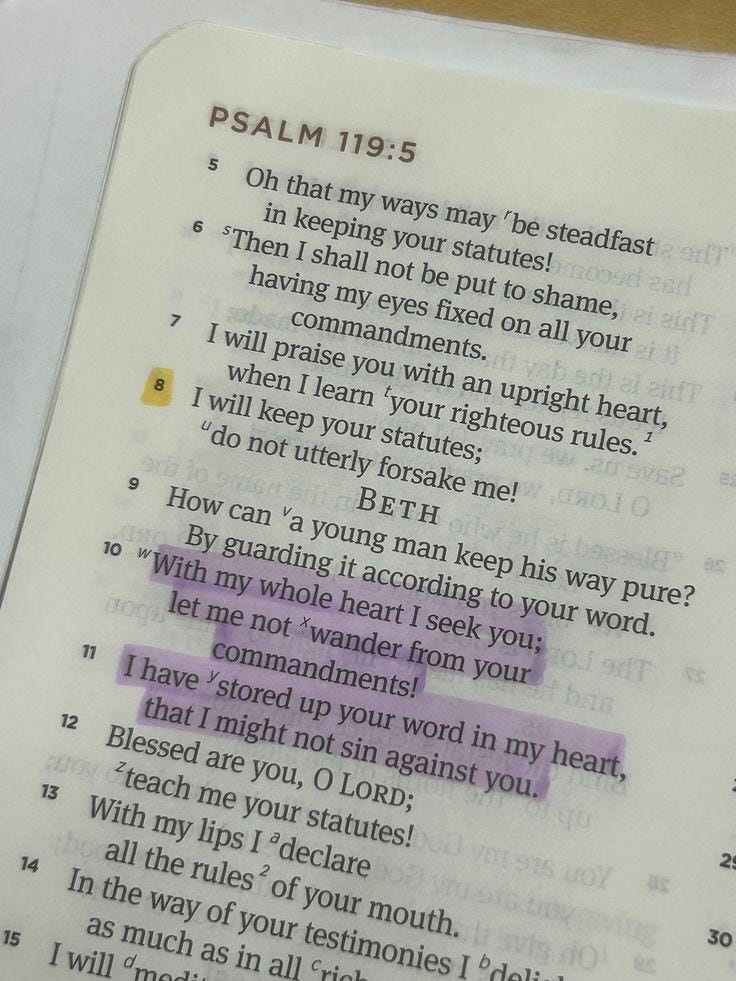 PSALM 119:5
5 Oh that my ways may ʳbe steadfast
in keeping your statutes!
6 ˢThen I shall not be put to shame,
having my eyes fixed on all your
commandments.
7 I will praise you with an upright heart,
when I learn ᵗyour righteous rules.¹
8 I will keep your statutes;
ᵘdo not utterly forsake me!
BETH
9 How can ᵛa young man keep his way pure?
By guarding it according to your word.
10 ʷWith my whole heart I seek you;
let me not ˣwander from your
commandments!
11 I have ʸstored up your word in my heart,
that I might not sin against you.
12 Blessed are you, O LORD;
ᶻteach me your statutes!
13 With my lips I ᵃdeclare
all the rules² of your mouth.
14 In the way of your testimonies I
as much as in all
15 I will
29
30